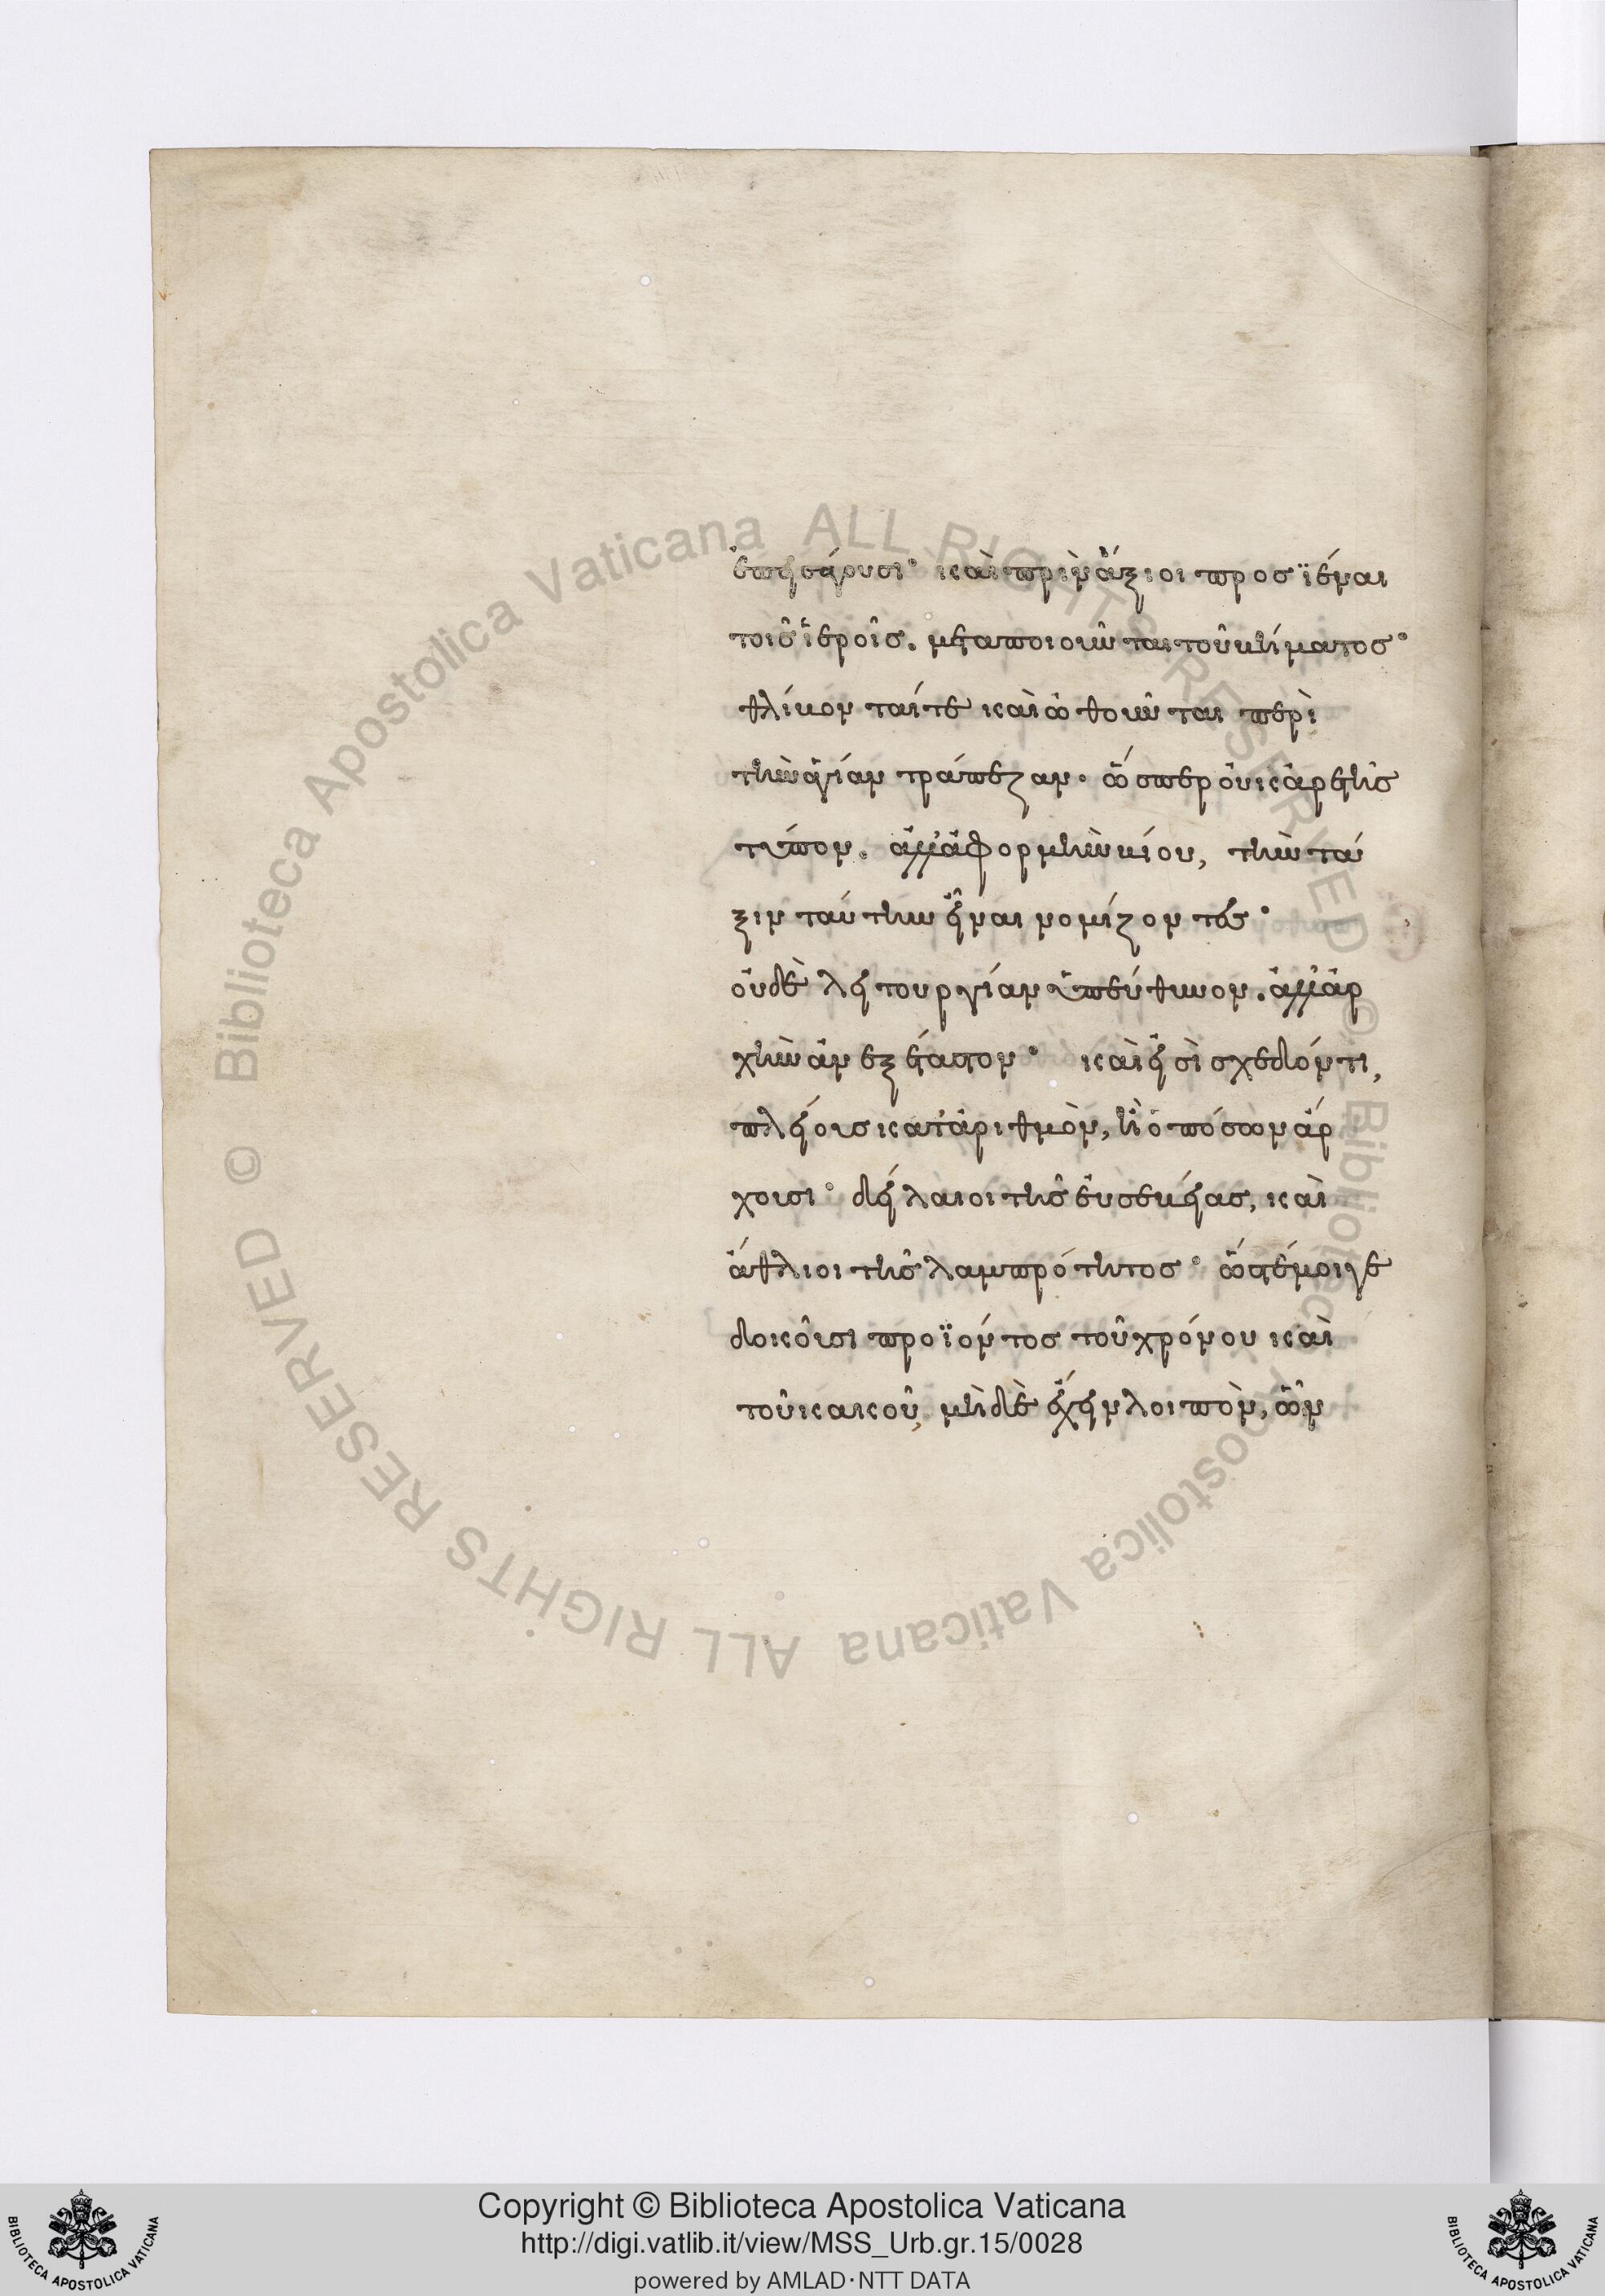 ἐπεισάγουσι· καὶ πρὶν ἄξιοι προσϊέναι
τοῖς ἱεροῖς. μεταποιοῦνται τοῦ βήματος·
θλίβονταί τε καὶ ὠθοῦνται περὶ
τὴν ἁγίαν τράπεζαν· ὥσπερ οὐκ ἀρετῆς
τύπον. ἀλλ' ἀφορμὴν βίου, τὴν τά
ξιν ταύτην εἶναι νομίζοντες·
οὐδὲ λειτουργίαν ὑπεύθυνον. ἀλλ' ἀρ
χὴν ἀνεξέταστον· καὶ εἰσὶ σχεδόν τι,
πλείους κατ' ἀριθμὸν, ἢ ὁπόσων ἄρ
χουσι· δείλαιοι τῆς εὐσεβείας, καὶ
ἄθλιοι τῆς λαμπρότητος· ὥστέ μοι γε
δοκοῦσι προϊόντος τοῦ χρόνου καὶ
τοῦ κακοῦ, μὴ δὲ ἔχειν λοιπὸν, ὧν
Copyright © Biblioteca Apostolica Vaticana
http://digi.vatlib.it/view/MSS_Urb.gr.15/0028
powered by AMLAD·NTT DATA
BIBLIOTECA APOSTOLICA VATICANA
BIBLIOTECA APOSTOLICA VATICANA
© Biblioteca Apostolica Vaticana ALL RIGHTS RESERVED
© Biblioteca Apostolica Vaticana ALL RIGHTS RESERVED